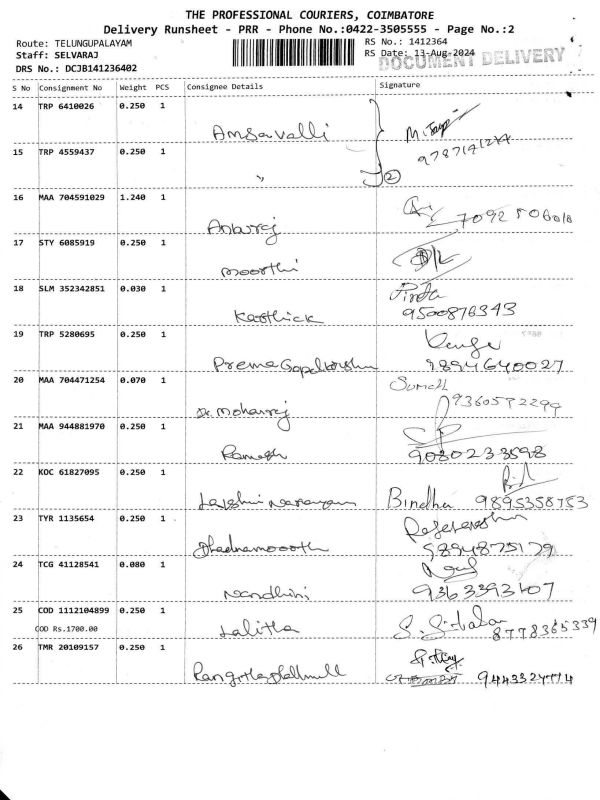 THE PROFESSIONAL COURIERS, COIMBATORE
Delivery Runsheet - PRR - Phone No.:0422-3505555 - Page No.:2
Route: TELUNGUPALAYAM
Staff: SELVARAJ
DRS No.: DCJB141236402
RS No.: 1412364
RS Date: 13-Aug-2024
DOCUMENT DELIVERY
S No Consignment No Weight PCS Consignee Details Signature
14 TRP 6410026 0.250 1
Ansavalli
15 TRP 4559437 0.250 1
" 2
16 MAA 704591029 1.240 1
Anburaj
17 STY 6085919 0.250 1
Moorthi
18 SLM 352342851 0.030 1
Karthick 9500876343
19 TRP 5280695 0.250 1
Prema Gopalkrishn 9894640027
20 MAA 704471254 0.070 1
Dr. Mohanraj 9360592299
21 MAA 944881970 0.250 1
Ramesh 9080233598
22 KOC 61827095 0.250 1
Bindha 9895358753
23 TYR 1135654 0.250 1
9894875179
24 TCG 41128541 0.080 1
Nandhini 9363393607
25 COD 1112104899 0.250 1
COD Rs.1700.00 Lalitha 8778365339
26 TMR 20109157 0.250 1
9443324774